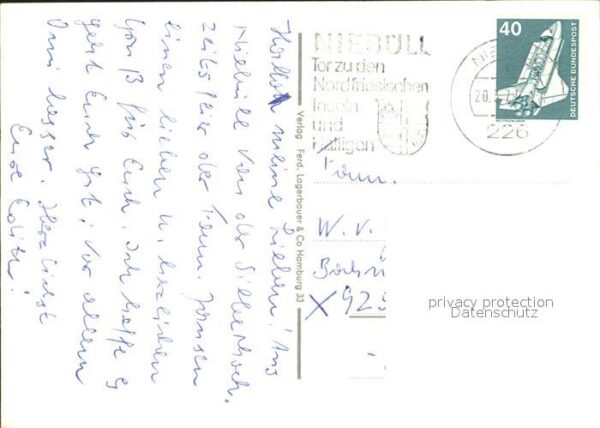 Hallo meine Lieben! Aus
Niebüll von der Silberhoch-
zeitsfeier der Fam. Jönssen
einen lieben u. herzlichen
Gruß für Euch. Ich hoffe es
geht Euch gut, vor allem
Omi besser. Herzlichst
Eure Edith!
Verlag Ferd. Lagerbauer & Co Hamburg 33
NIEBÜLL
Tor zu den
Nordfriesischen
Inseln
und
Halligen
20
226
40
DEUTSCHE BUNDESPOST
Fam.
W. v.
X 925
privacy protection
Datenschutz